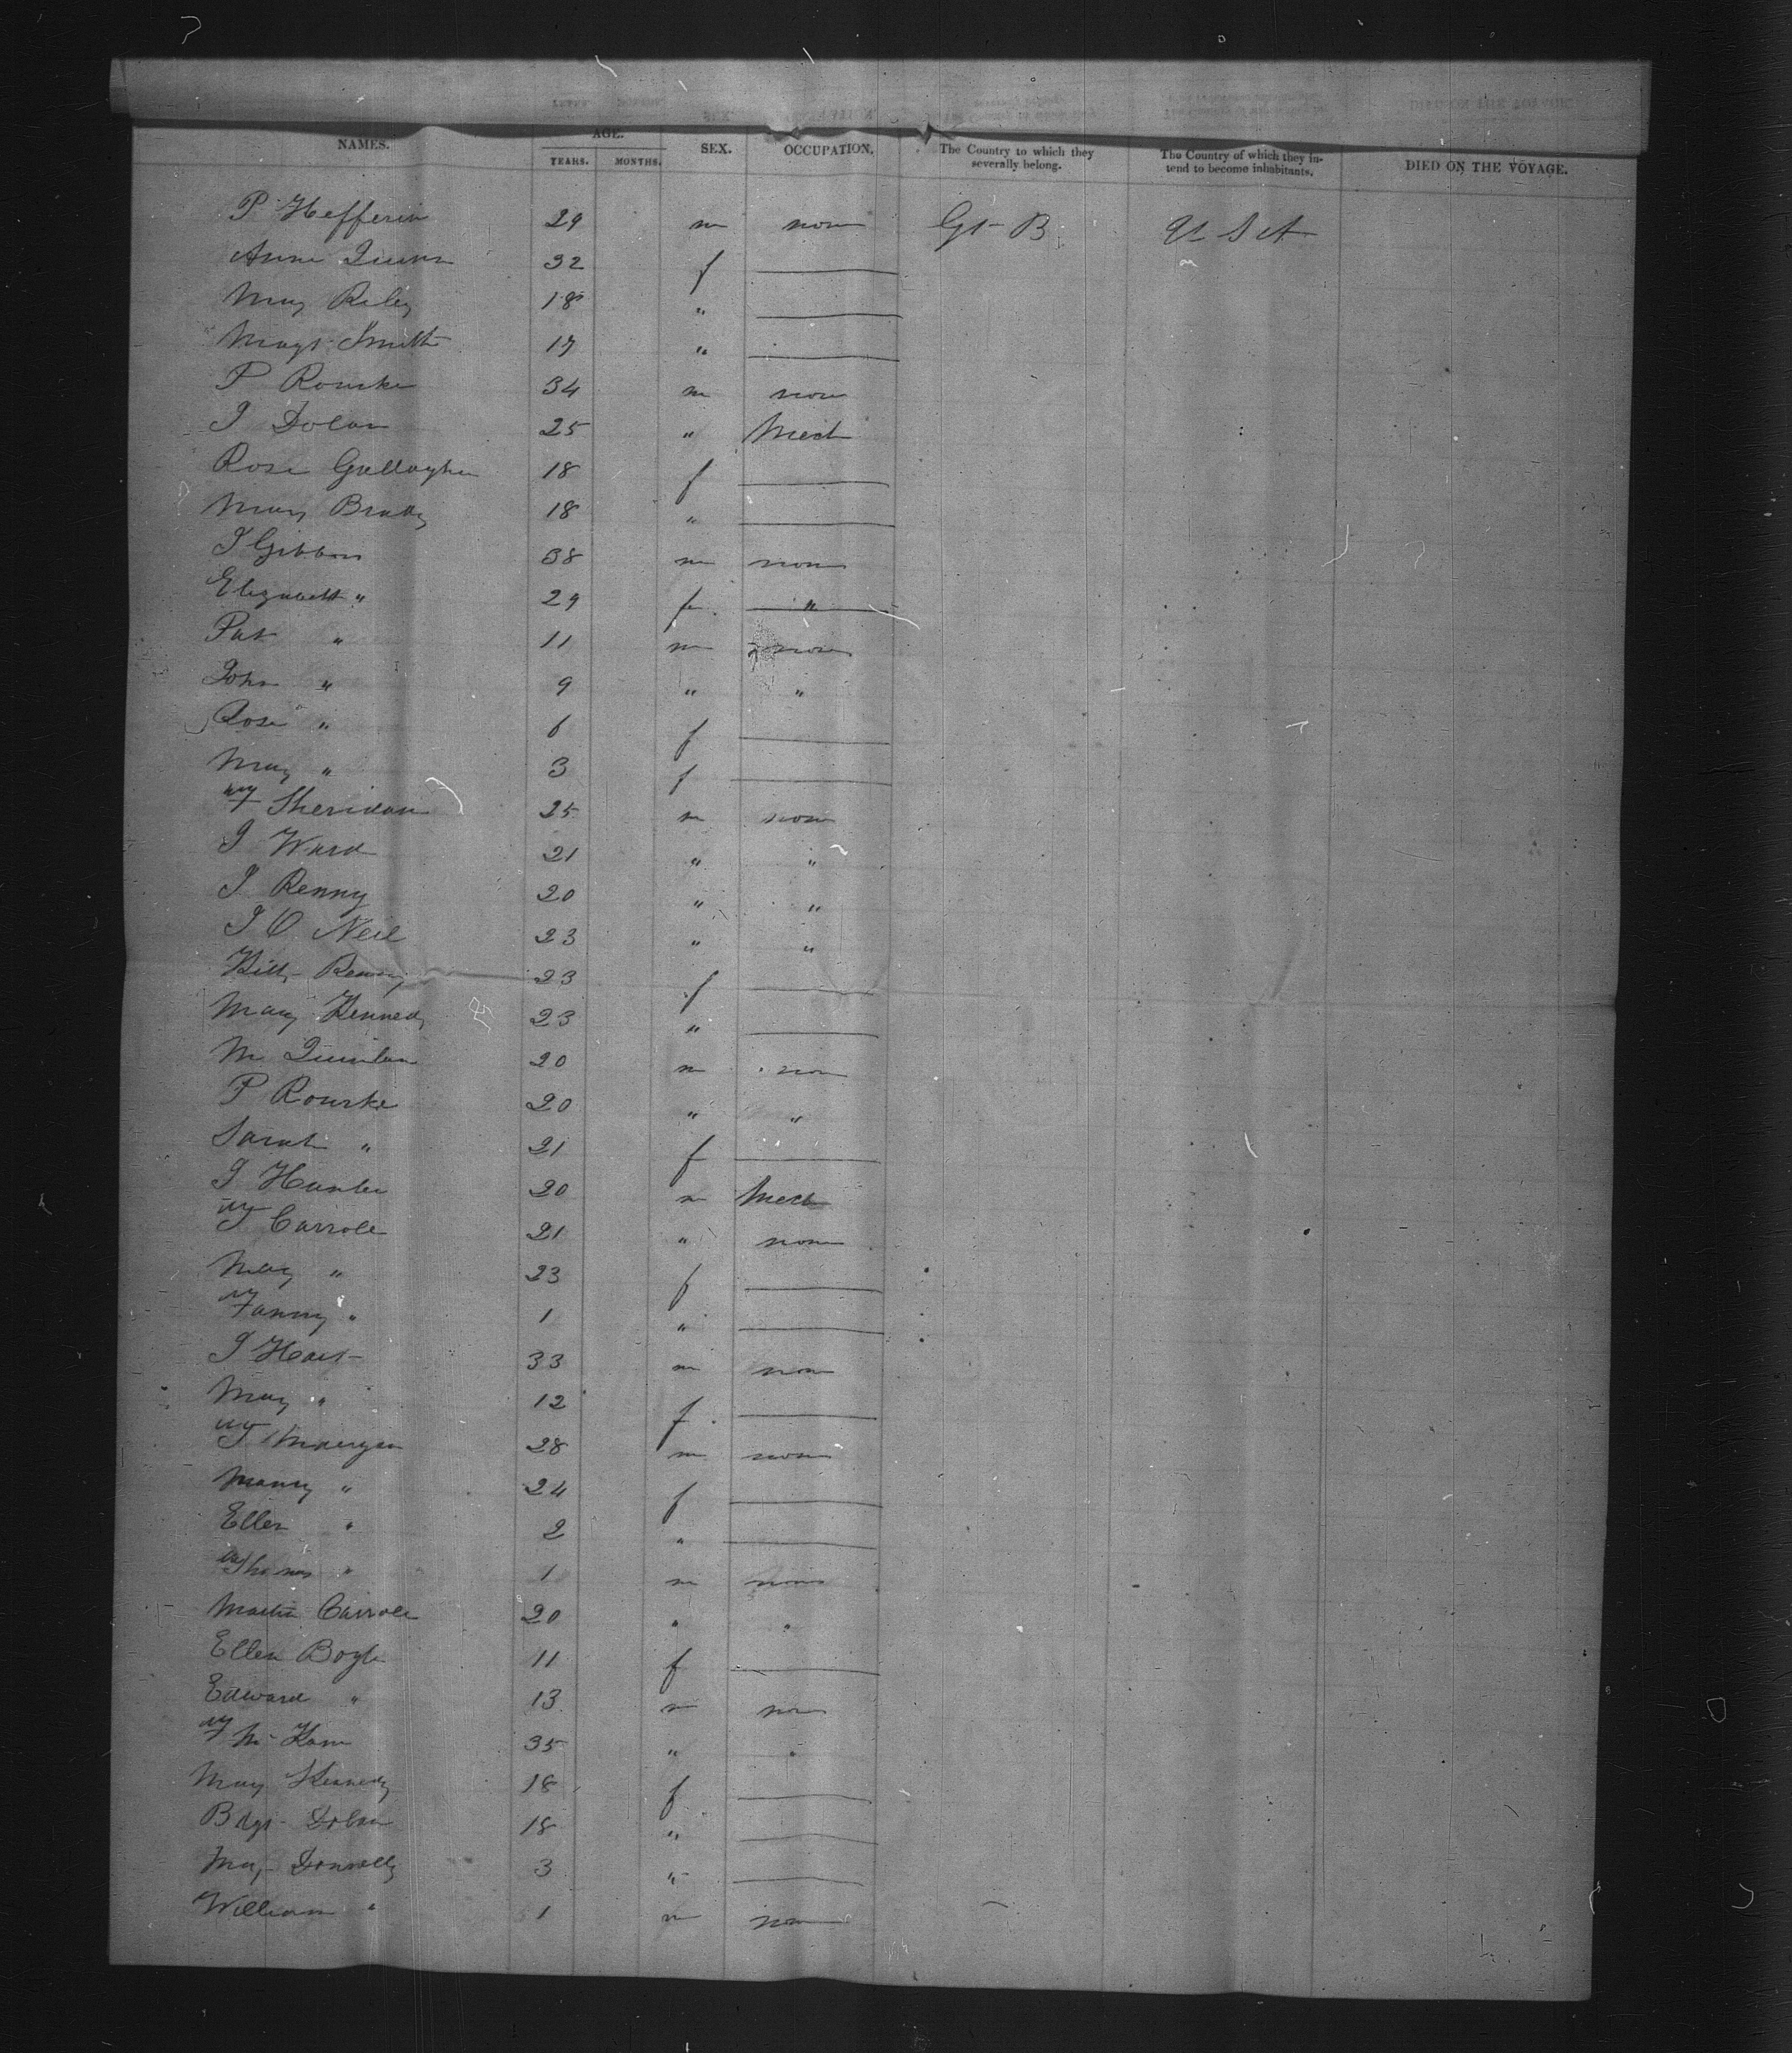 NAMES. AGE. SEX. OCCUPATION. The Country to which they severally belong. The Country of which they intend to become inhabitants. DIED ON THE VOYAGE.
YEARS. MONTHS.
P Hefferin 29 m non Gt B U S A
Anne Quinn 32 f
Mary Riley 18 "
Magt Smith 17 "
P Rourke 34 m non
J Dolan 25 " Mech
Rose Gallagher 18 f
Mary Brady 18 "
J Gibbons 38 m non
Elizabeth " 29 f "
Pat " 11 m non
John " 9 " "
Rose " 6 f
Mary " 3 f
Sheridan 25 m non
J Ward 21 " "
J Renny 20 " "
J O Neil 23 " "
Kitty Renny 23 f
Mary Kennedy 23 "
M Quinlan 20 m non
P Rourke 20 " "
Sarah " 21 f
J Hunter 20 m Mech
J Carrole 21 " non
Mary " 23 f
Fanny " 1 "
J Hart 33 m non
Mary " 12 f
28 m non
" 24 f
Ellen " 2 "
Thomas " 1 m non
Martin Carrole 20 " "
Ellen Boyle 11 f
Edward " 13 m non
Mc Kane 35 " "
Mary Kennedy 18 f
Bdgt Dolan 18 "
May Donnelly 3 "
William " 1 m non